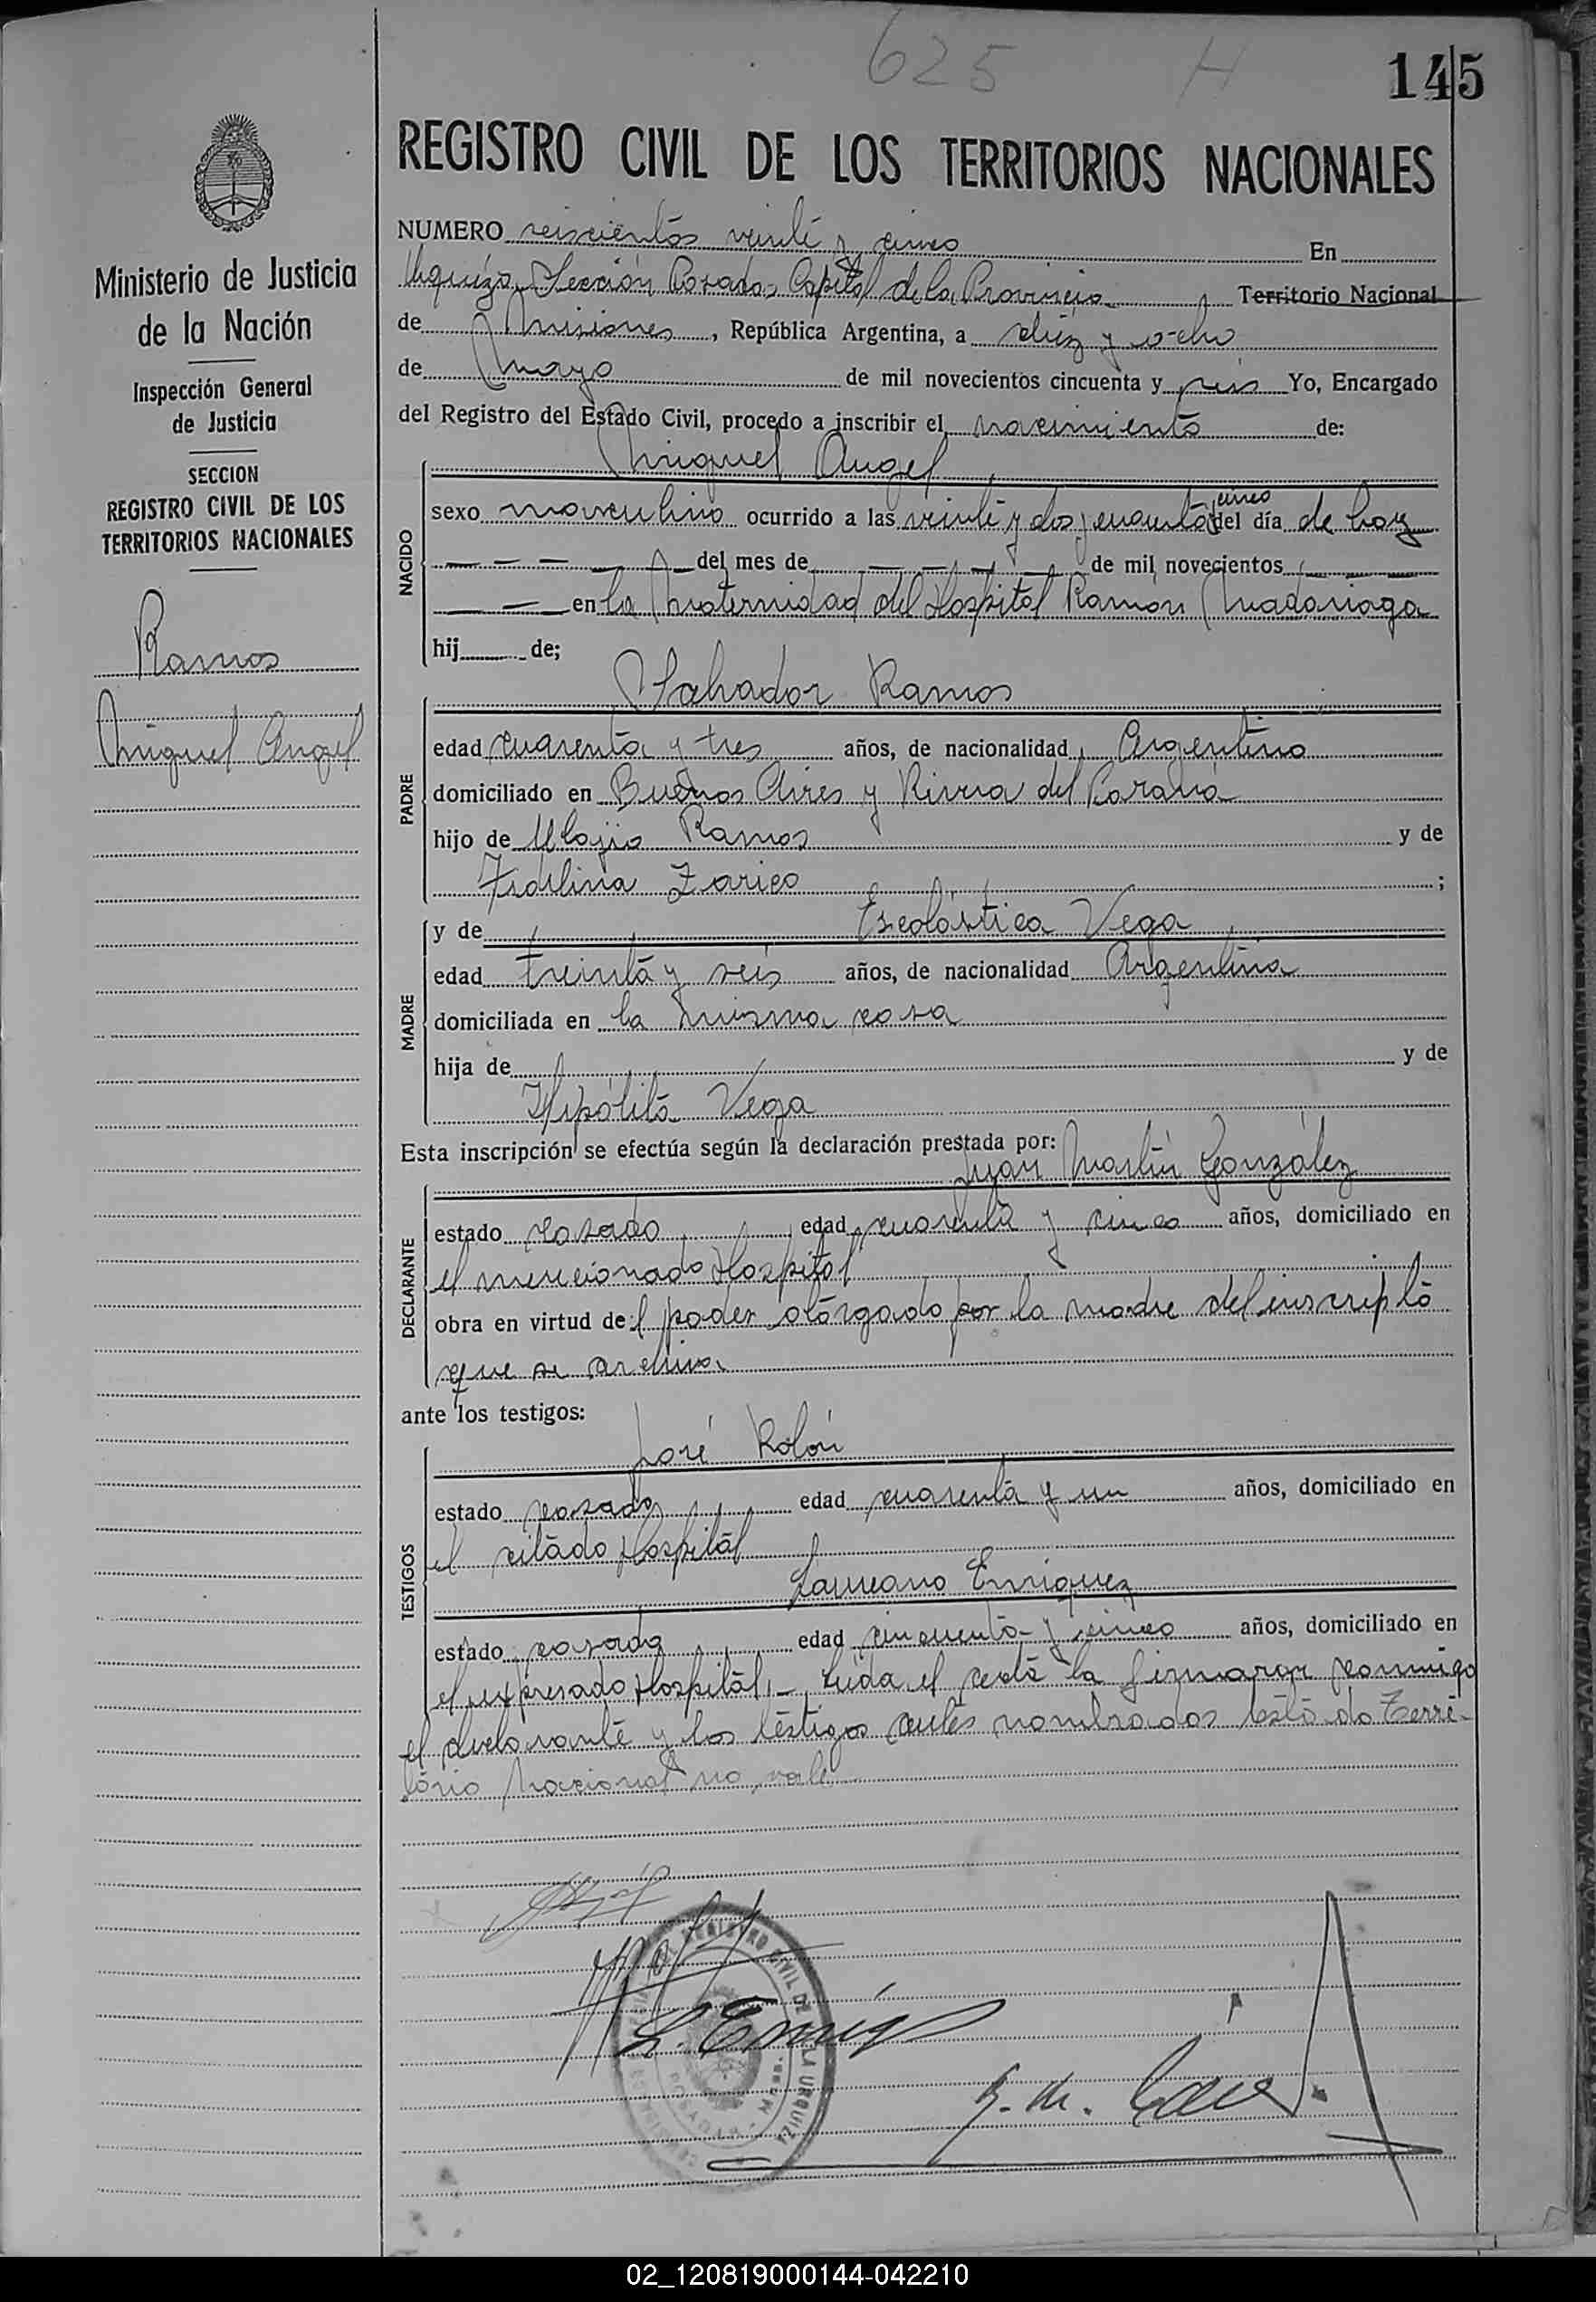 625 H
145
REGISTRO CIVIL DE LOS TERRITORIOS NACIONALES
Ministerio de Justicia
de la Nación
Inspección General
de Justicia
SECCION
REGISTRO CIVIL DE LOS
TERRITORIOS NACIONALES
Ramos
Miguel Angel
NUMERO seiscientos veinte y cinco En
Urquiza, Sección Posadas Capital de la Provincia Territorio Nacional
de Misiones, República Argentina, a diez y ocho
de Mayo de mil novecientos cincuenta y seis Yo, Encargado
del Registro del Estado Civil, procedo a inscribir el nacimiento de:
Miguel Angel
NACIDO
sexo masculino ocurrido a las veinte y dos y cuarenta cinco del día de hoy
del mes de de mil novecientos
en la Maternidad del Hospital Ramón Madariaga
hij de;
PADRE
Salvador Ramos
edad cuarenta y tres años, de nacionalidad Argentino
domiciliado en Buenos Aires y Rivera del Paraná
hijo de Ramos y de
Fidelina ;
MADRE
y de Escolástica Vega
edad treinta y seis años, de nacionalidad Argentina
domiciliada en la misma casa
hija de y de
Hipólita Vega
Esta inscripción se efectúa según la declaración prestada por:
DECLARANTE
Juan Martín González
estado casado edad cuarenta y cinco años, domiciliado en
el mencionado Hospital
obra en virtud de:l poder otorgado por la madre del inscripto
que se archiva
ante los testigos:
TESTIGOS
José Rolón
estado casado edad cuarenta y un años, domiciliado en
el citado Hospital
Laureano Enriquez
estado casado edad cincuenta y cinco años, domiciliado en
el expresado Hospital.- Leída el acta la firmaron conmigo
el declarante y los testigos antes nombrados testado Terri-
torio Nacional no vale
L. Enriq
REGISTRO CIVIL DE VILLA URQUIZA
02_120819000144-042210